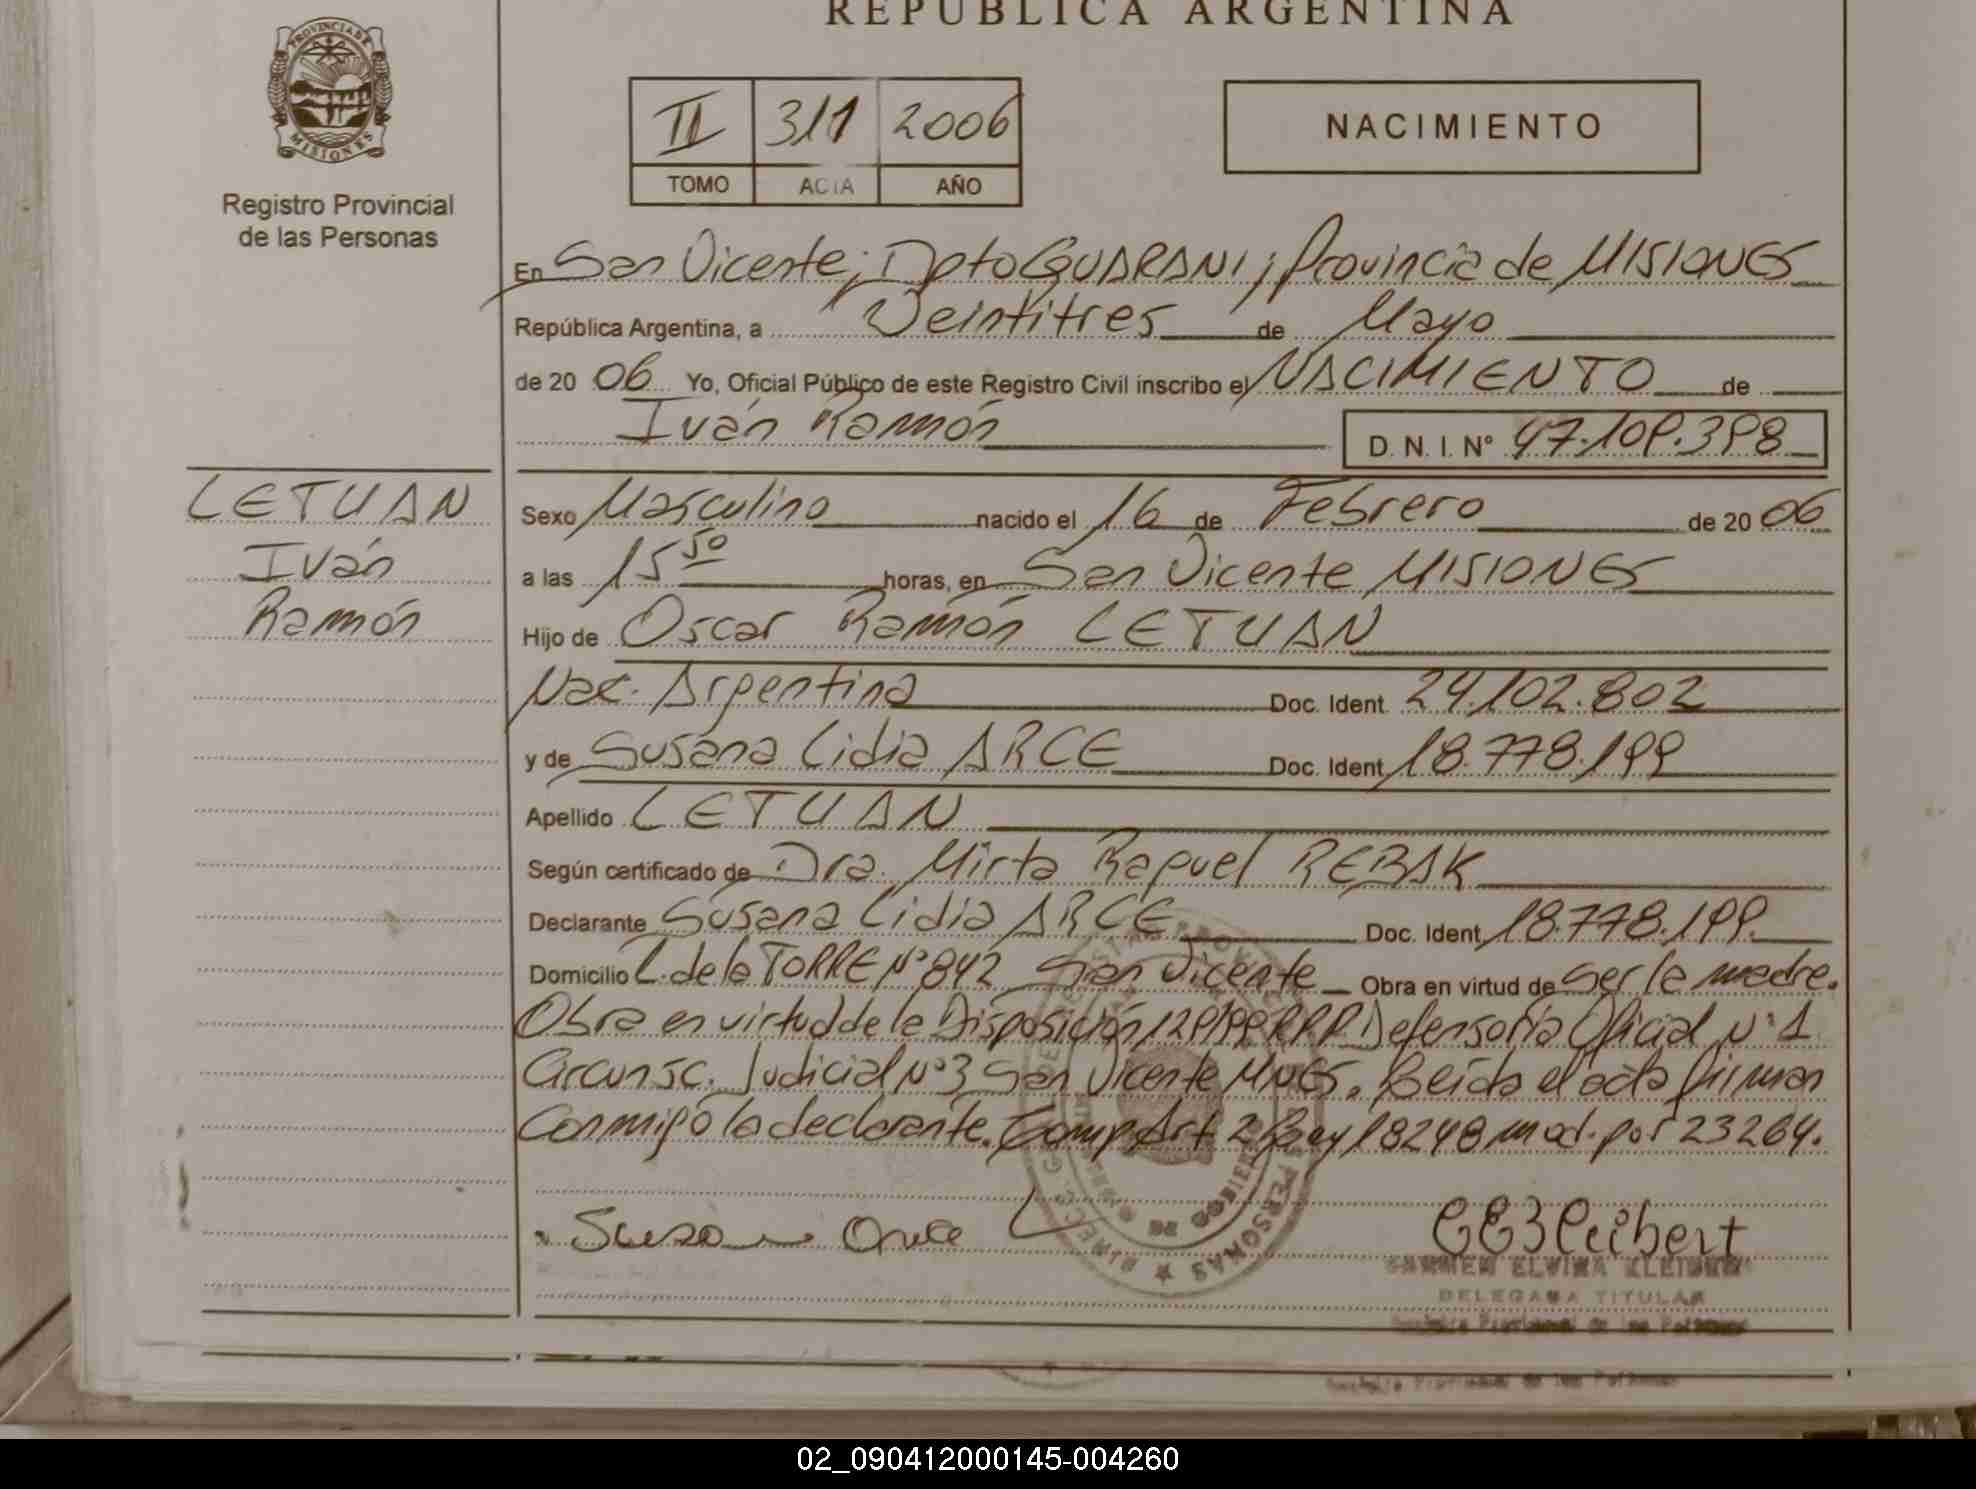 REPUBLICA ARGENTINA
PROVINCIA DE
MISIONES
Registro Provincial
de las Personas
II 311 2006
TOMO ACTA AÑO
NACIMIENTO
En San Vicente; Dpto GUARANI; Provincia de MISIONES
República Argentina, a Veintitres de Mayo
de 2006 Yo, Oficial Público de este Registro Civil inscribo el NACIMIENTO de
Iván Ramón D. N. I. Nº 47.109.398
LETUAN
Iván
Ramón
Sexo Masculino nacido el 16 de Febrero de 2006
a las 15 50 horas, en San Vicente MISIONES
Hijo de Oscar Ramón LETUAN
Nac. Argentina Doc. Ident. 24.102.802
y de Susana Lidia ARCE Doc. Ident. 18.778.199
Apellido LETUAN
Según certificado de Dra. Mirta Raquel REBAK
Declarante Susana Lidia ARCE Doc. Ident. 18.778.199.
Domicilio L. de la TORRE Nº 842 San Vicente Obra en virtud de ser la madre.
Obra en virtud de la Disposición 129/99 RPP Defensoría Oficial Nº 1
Circunsc. Judicial Nº 3 San Vicente MNES. Leída el acta firman
Conmigo la declarante. Art 2 Ley 18248 mod. por 23264.
Susana Arce
CARMEN ELVIRA
DELEGADA TITULAR
Registro Provincial de las Personas
Registro Provincial de las Personas
02_090412000145-004260